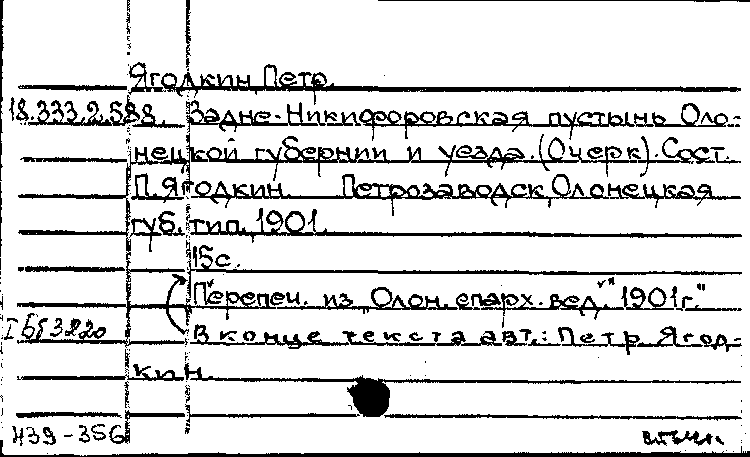 Ягодкин, Петр.
18.333.2.588. Задне-Никифоровская пустынь Оло-
нецкой губернии и уезда. (Очерк). Сост.
П. Ягодкин. Петрозаводск, Олонецкая
губ. тип., 1901.
15с.
"Перепеч. из „Олон. епарх. вед." 1901г."
В конце текста авт.: Петр Ягод-
кин.
439-356